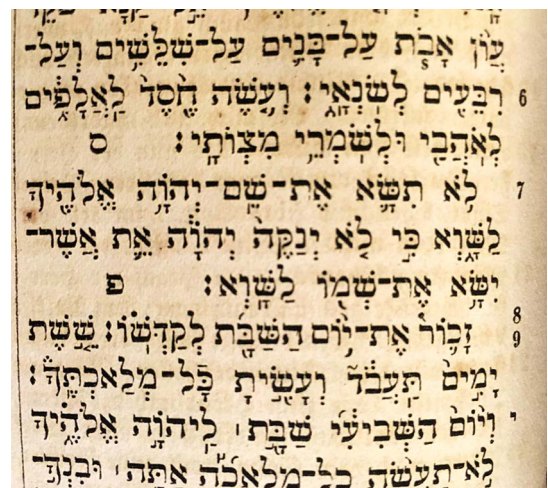 עֲוֺן אָבֹת עַל־בָּנִים עַל־שִׁלֵּשִׁים וְעַל־
רִבֵּעִים לְשֹׂנְאָי׃ וְעֹשֶׂה חֶסֶד לַאֲלָפִים 6
לְאֹהֲבַי וּלְשֹׁמְרֵי מִצְוֺתָי׃ ס
לֹא תִשָּׂא אֶת־שֵׁם־יְהוָֹה אֱלֹהֶיךָ 7
לַשָּׁוְא כִּי לֹא יְנַקֶּה יְהוָֹה אֵת אֲשֶׁר־
יִשָּׂא אֶת־שְׁמוֹ לַשָּׁוְא׃ פ
8
זָכוֹר אֶת־יוֹם הַשַּׁבָּת לְקַדְּשׁוֹ׃ שֵׁשֶׁת 9
יָמִים תַּעֲבֹד וְעָשִׂיתָ כָּל־מְלַאכְתֶּךָ׃
וְיוֹם הַשְּׁבִיעִי שַׁבָּת לַיהוָֹה אֱלֹהֶיךָ י
לֹא־תַעֲשֶׂה כָל־מְלָאכָה אַתָּה וּבִנְךָ־